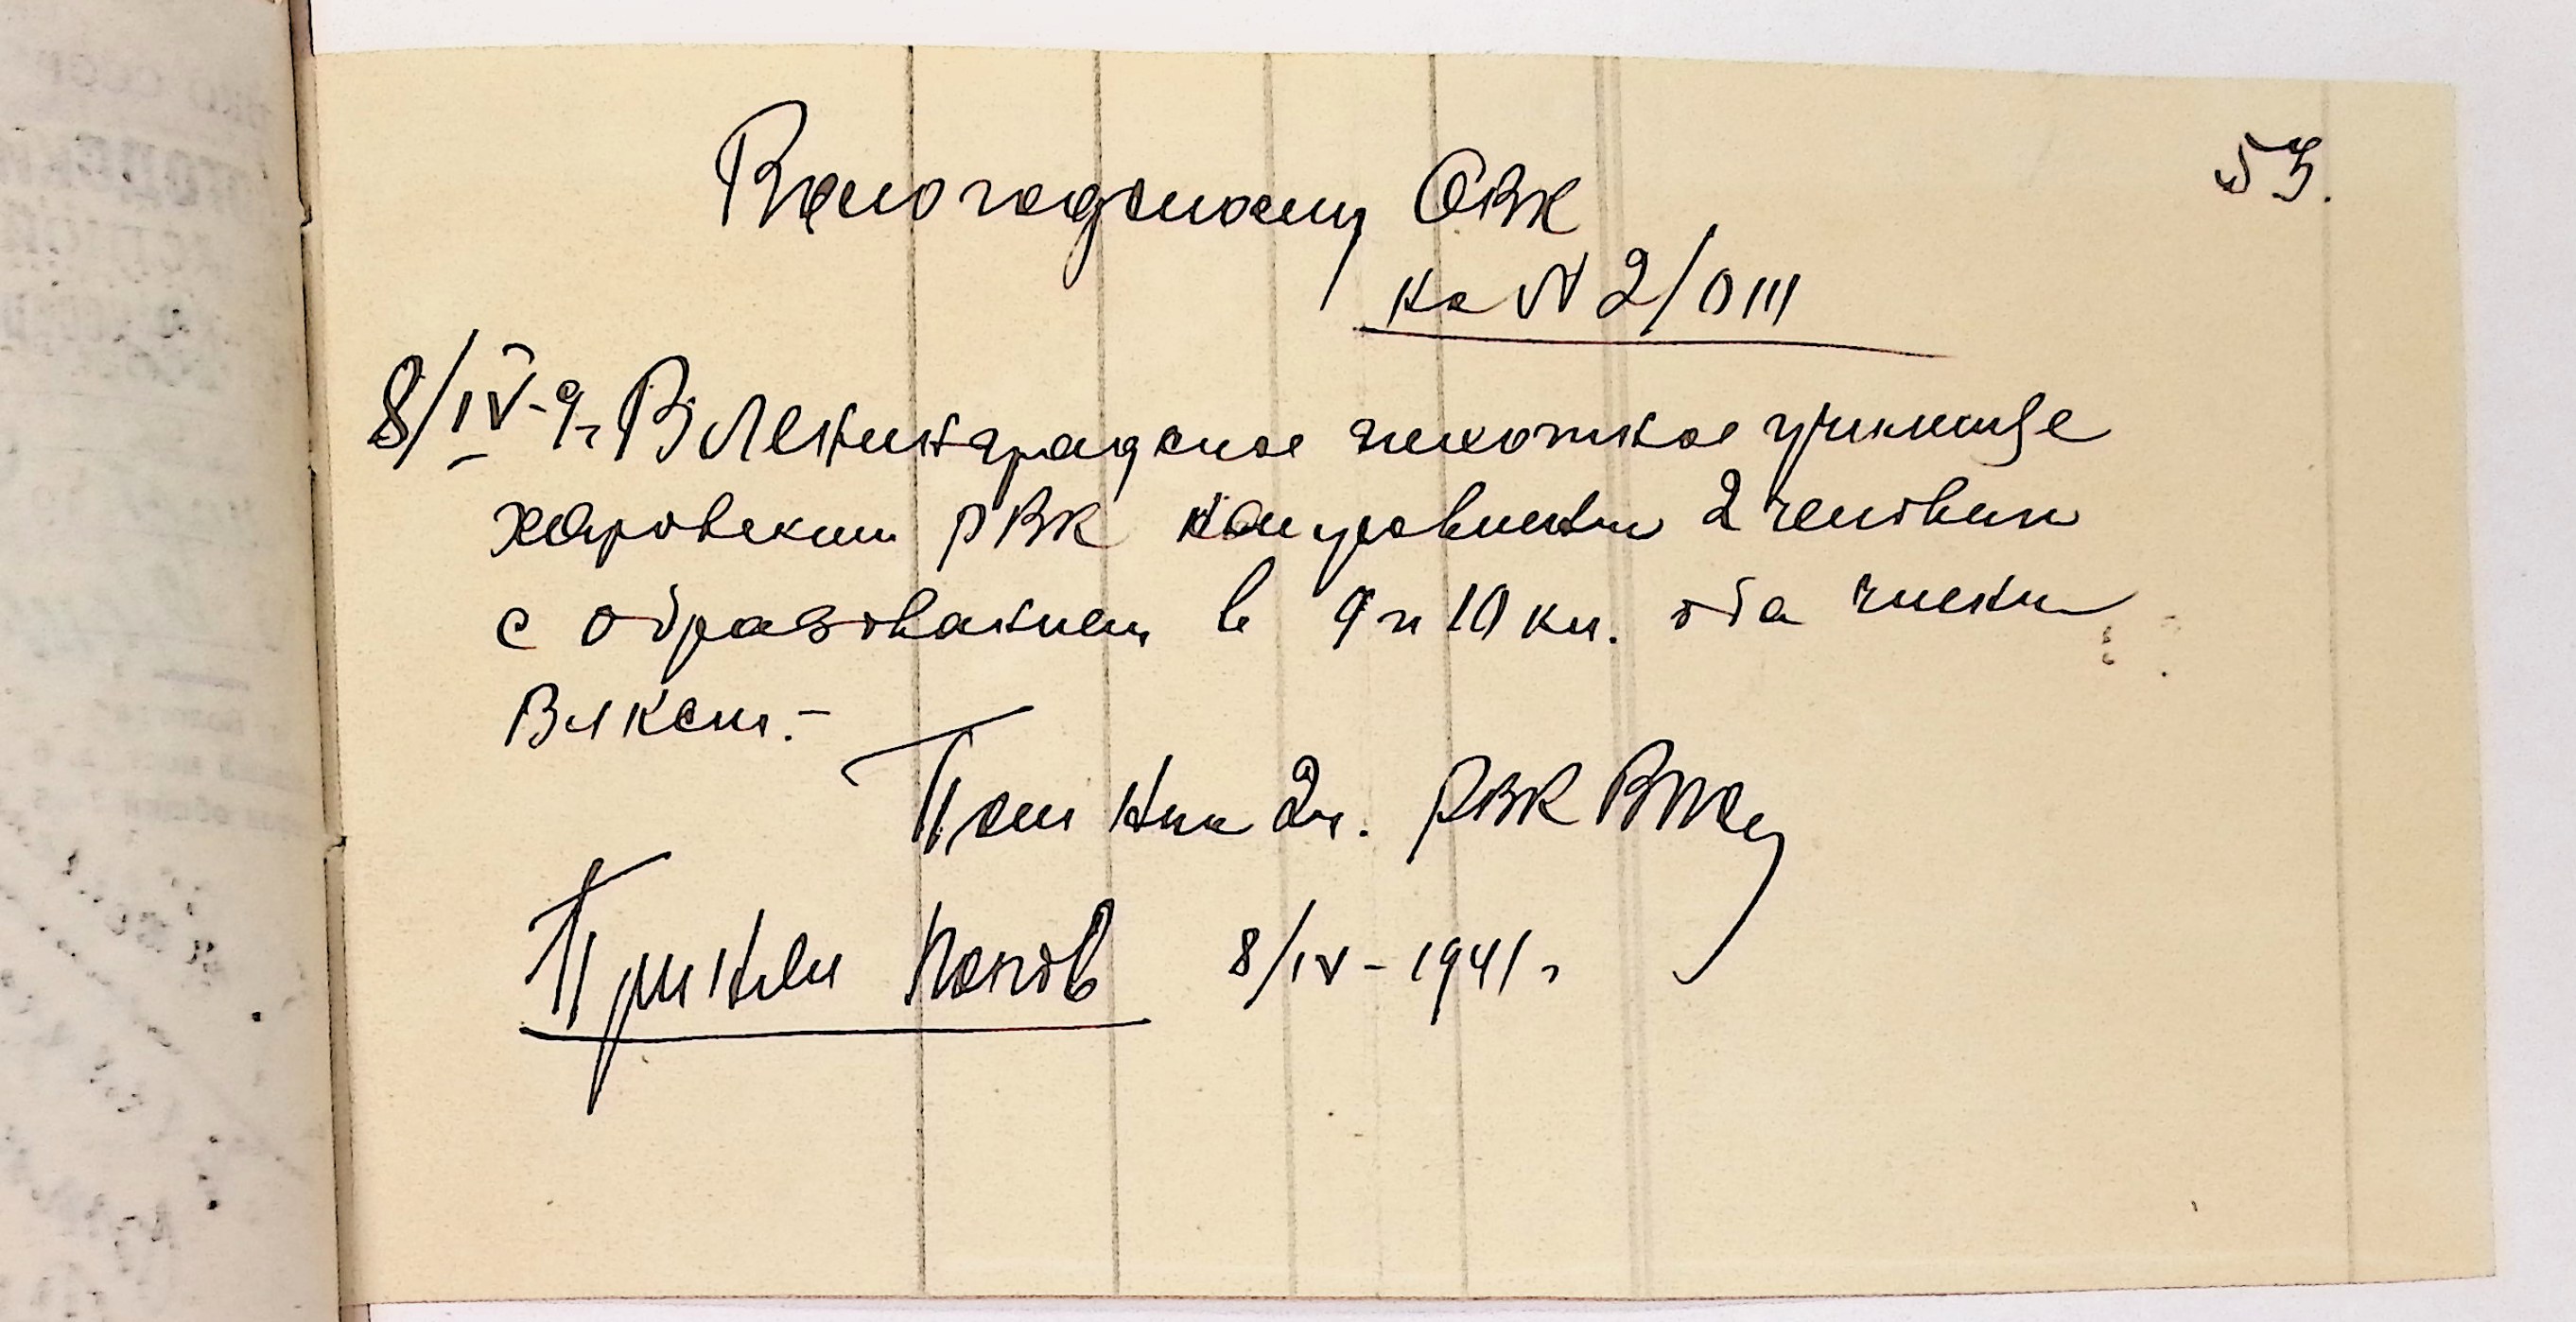 53.
Вологодскому ОВК
на № 2/0111
8/IV-9г В Ленинградское пехотное училище
Харовским РВК направлены 2 человека
с образованием в 9 и 10 кл. оба члены
ВЛКСМ.-
Пом Нач 2ч. РВК
Принял Попов 8/IV-1941г